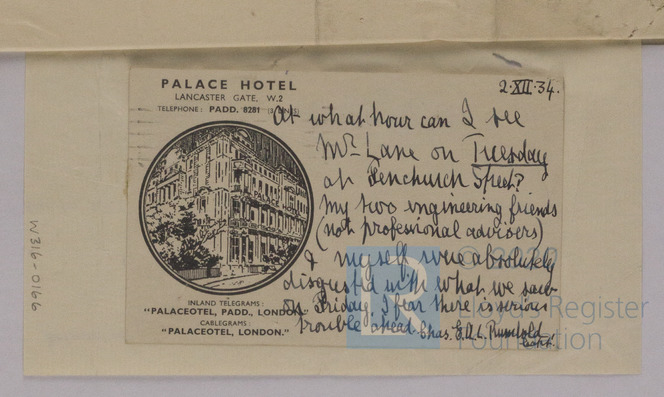 PALACE HOTEL
LANCASTER GATE, W.2
TELEPHONE: PADD. 8281 (3 LINES)
2·XII·34.
At what hour can I see
Mr Lane on Tuesday
at Fenchurch Street?
My two engineering friends
(not professional advisers)
& myself were absolutely
disgusted with what we saw
on Friday. I fear there is serious
trouble ahead. Chas. E.A.L. Rumbold
Capt.
INLAND TELEGRAMS:
"PALACEOTEL, PADD., LONDON."
CABLEGRAMS:
"PALACEOTEL, LONDON."
W316-0166
© 2020
Lloyd's Register
Foundation